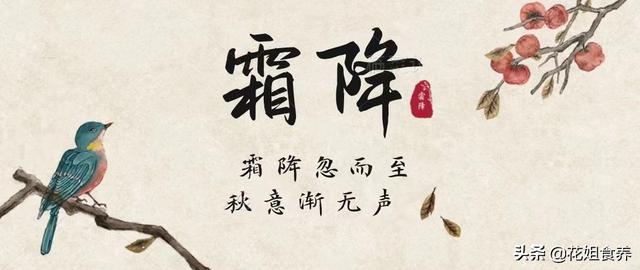 霜降
霜降
霜降忽而至
秋意渐无声
头条 @花姐食养